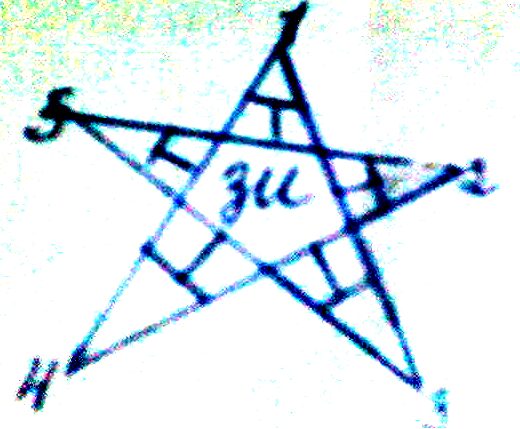 1
5
2
зи
4
3